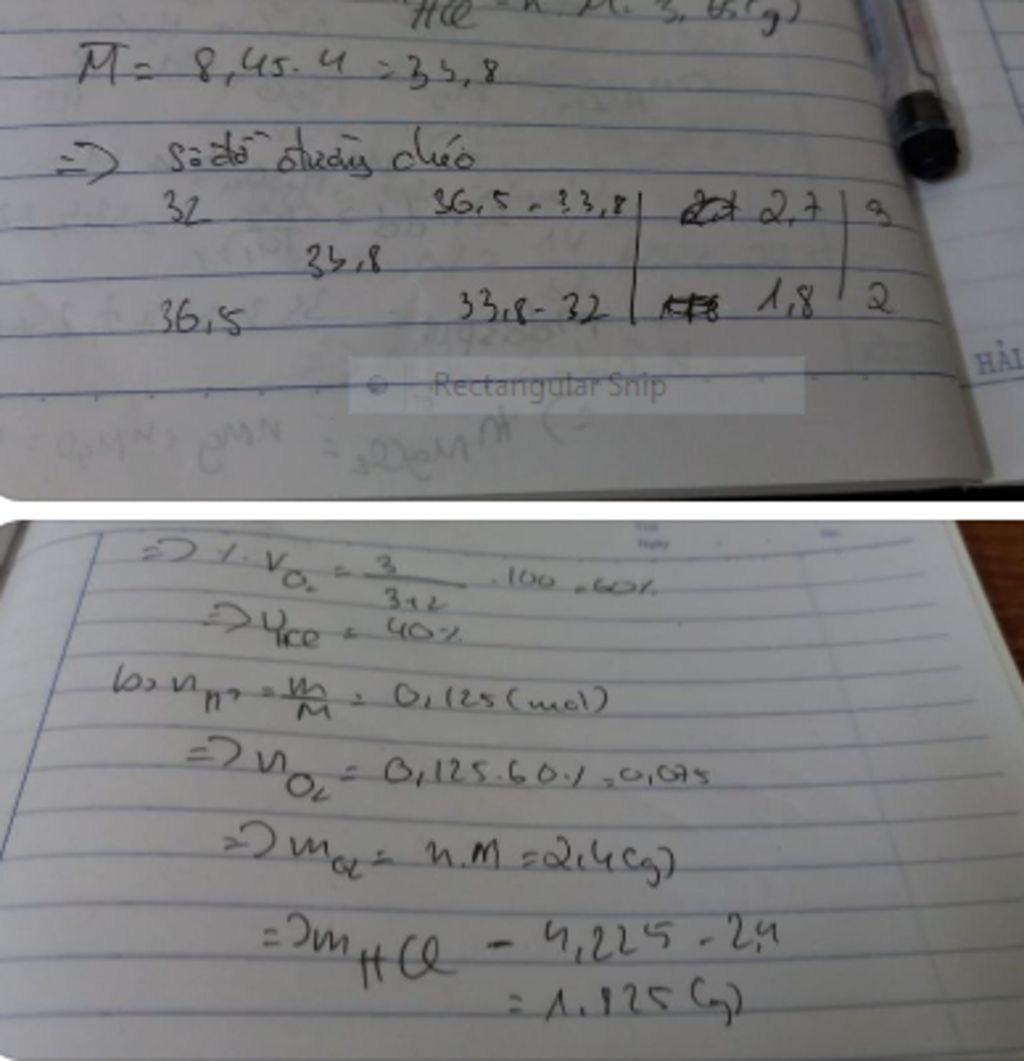 HCl = n.M = 3,65(g)
M̅ = 8,45.4 = 33,8
=> Sơ đồ đường chéo
32 36,5 - 33,8 | 2,7 | 3
33,8
36,5 33,8 - 32 | 1,8 | 2
Rectangular Snip
HẢI
=> %V O2 = 3/(3+2) .100 = 60%
=> VHCl = 40%
b> n = m/M = 0,125 (mol)
=> nO2 = 0,125.60% = 0,075
=> mO2 = n.M = 2,4(g)
=> mHCl = 4,225 - 2,4
= 1,825 (g)